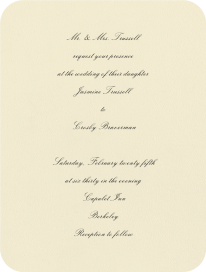 Mr. & Mrs. Trussell
request your presence
at the wedding of their daughter
Jasmine Trussell
to
Crosby Braverman
Saturday, February twenty fifth
at six thirty in the evening
Capulet Inn
Berkeley
Reception to follow